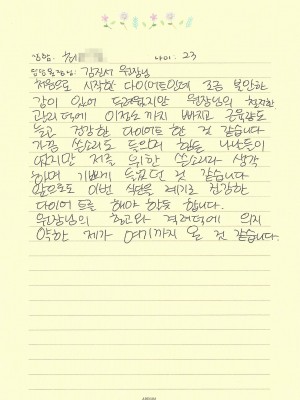 성함: 허 나이: 23
담당원장님: 김진서 원장님
처음으로 시작한 다이어트인데 조금 불안한
감이 있어 두려웠지만 원장님의 철저한
관리덕에 이정도 까지 빠지고 근육량도
늘고 건강한 다이어트 한 것 같습니다
가끔 쓴소리도 들으며 힘든 나날들이
였지만 저를 위한 쓴소리라 생각
하며 기쁘게 들었던 것 같습니다
앞으로도 이번 식단을 계기로 건강한
다이어트를 해야 할듯 합니다.
원장님의 충고와 격려덕에 의지
약한 제가 여기까지 온 것 같습니다.